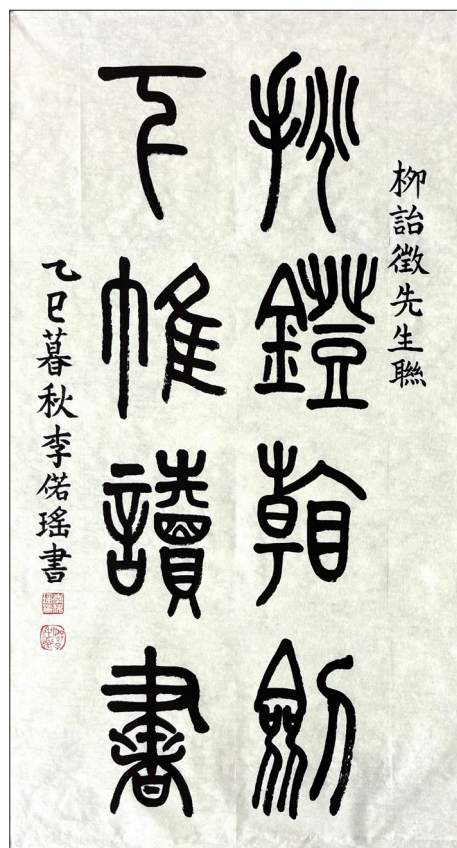 柳詒徵先生聯
挑鐙看劍
下帷讀書
乙巳暮秋李偌瑤書